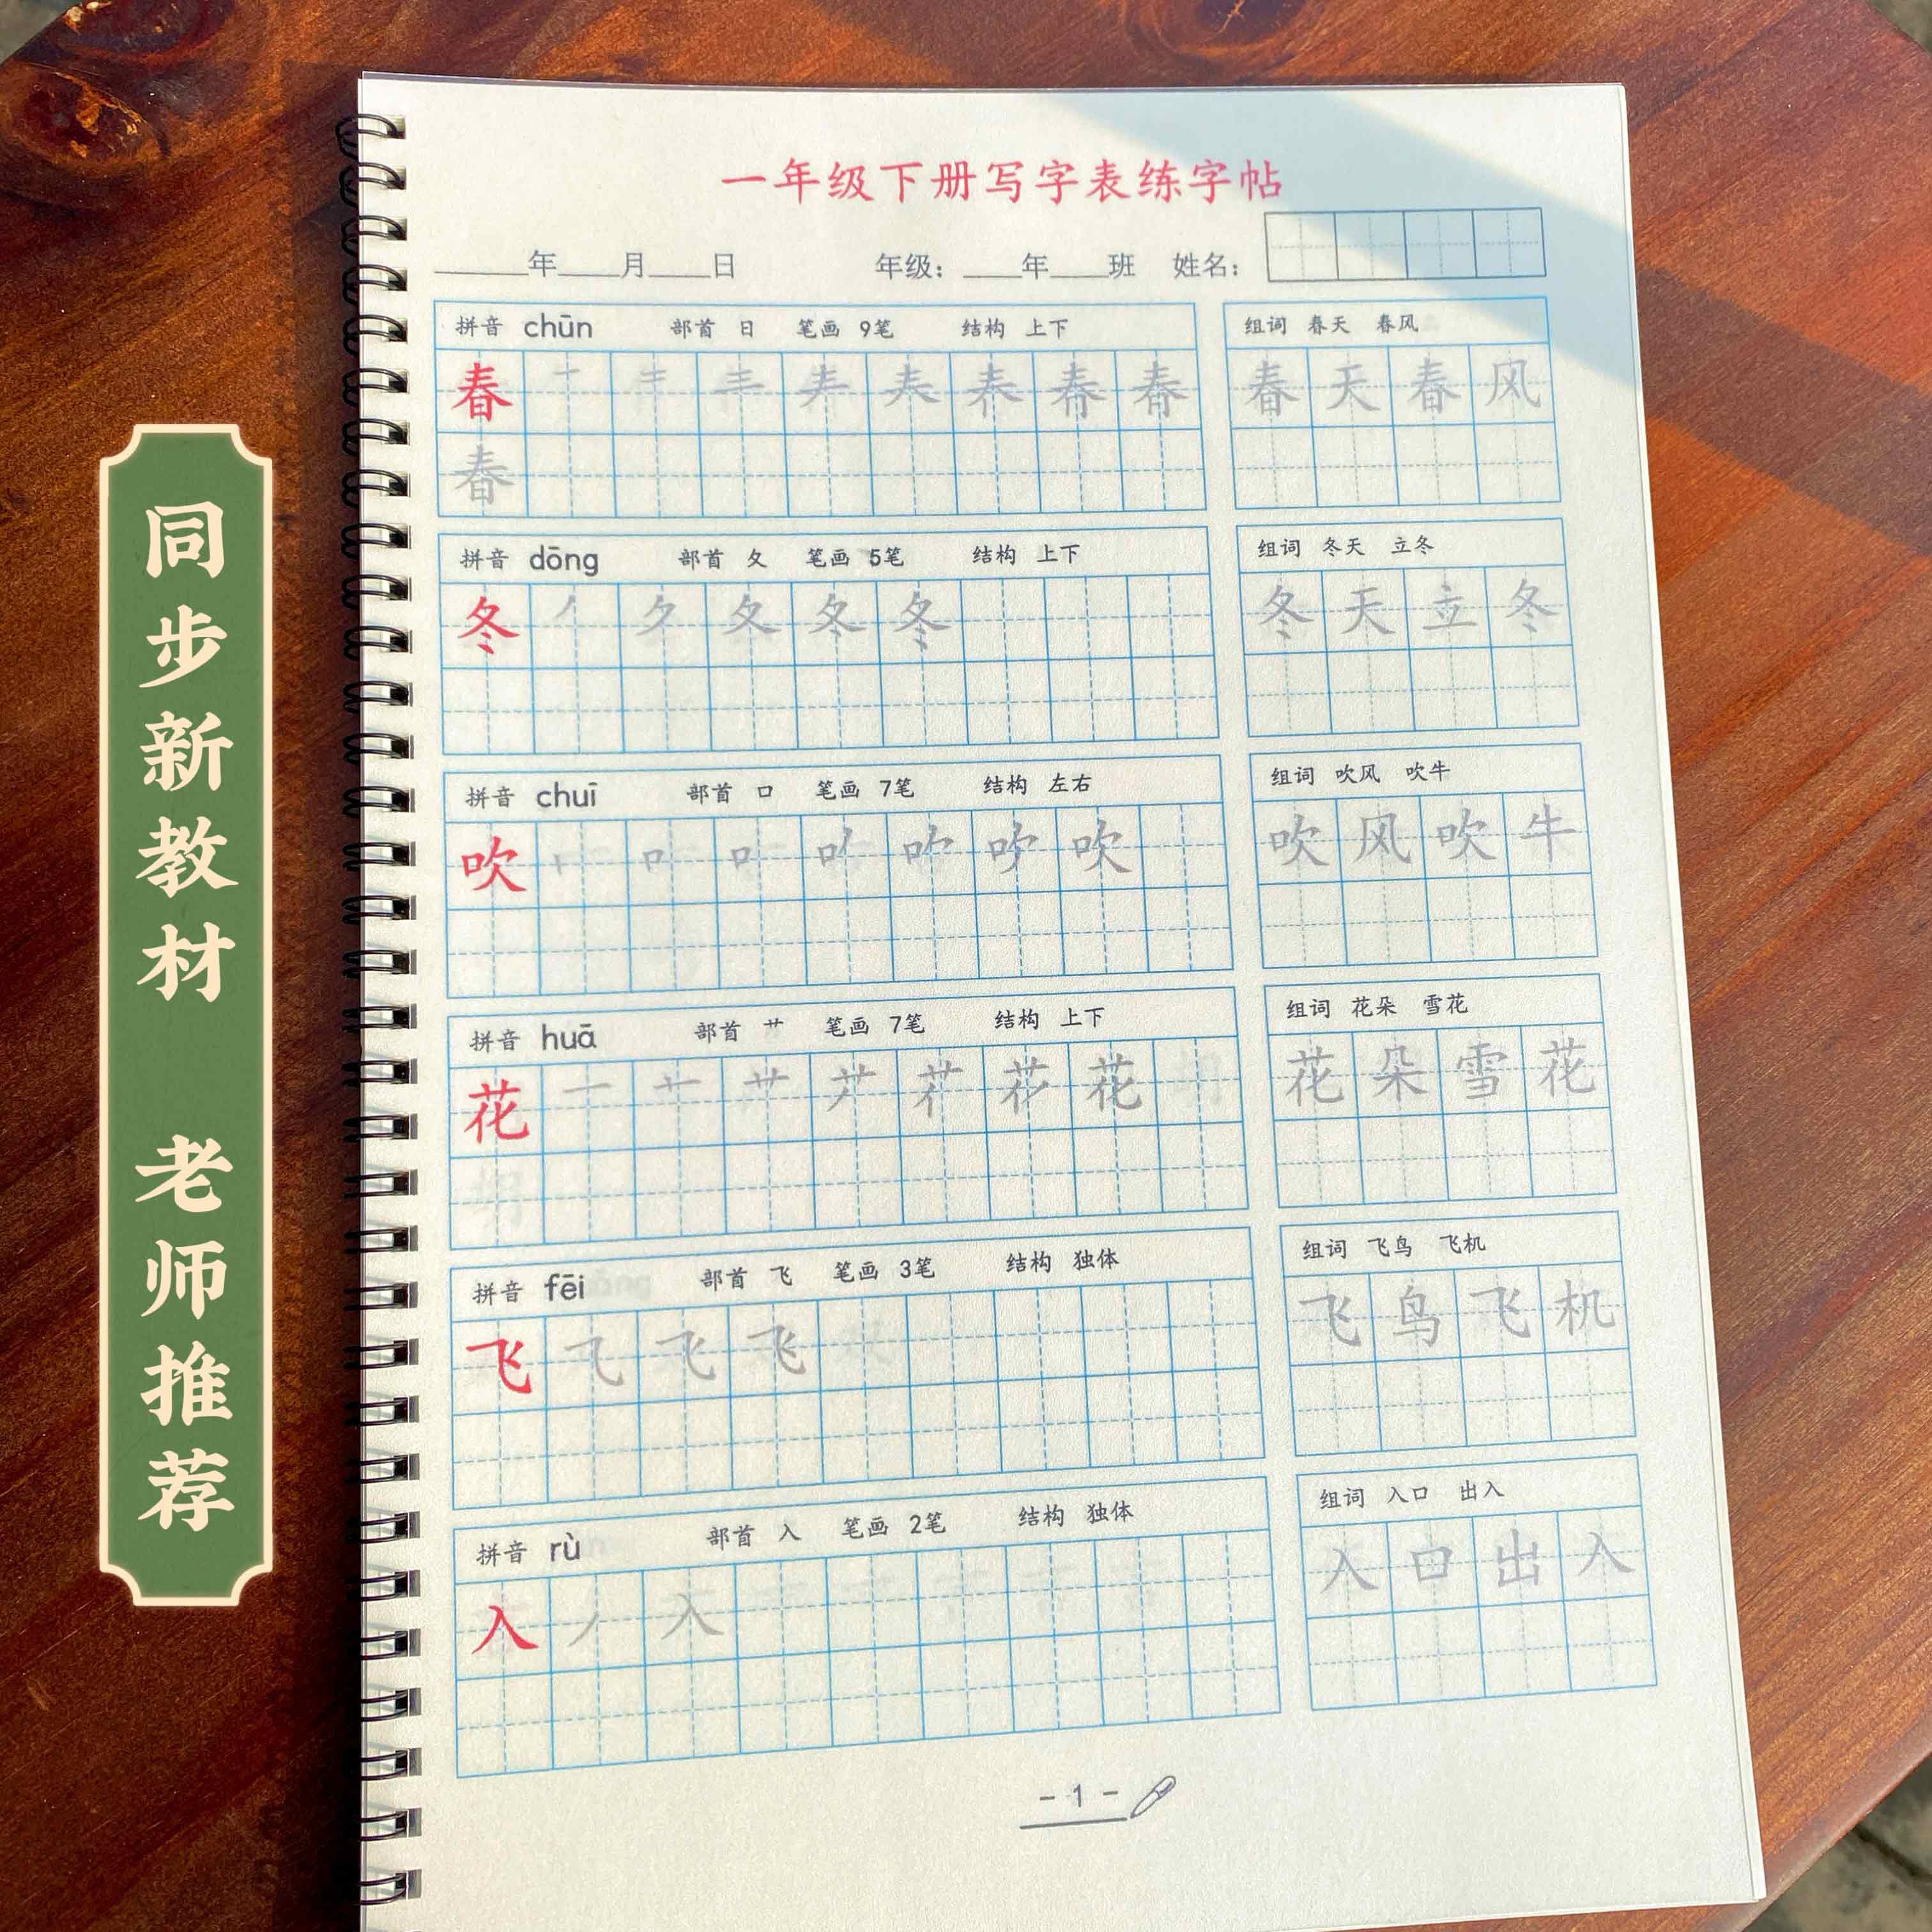 同步新教材 老师推荐
一年级下册写字表练字帖
______年____月____日 年级：____年____班 姓名：
拼音 chūn 部首 日 笔画 9笔 结构 上下
组词 春天 春风
春 春 春
春天春风
春
拼音 dōng 部首 夂 笔画 5笔 结构 上下
组词 冬天 立冬
冬 丿 ク 夂 冬
冬天立冬
拼音 chuī 部首 口 笔画 7笔 结构 左右
组词 吹风 吹牛
吹 吹
吹风吹牛
拼音 huā 部首 艹 笔画 7笔 结构 上下
组词 花朵 雪花
花 一 艹 花
花朵雪花
拼音 fēi 部首 飞 笔画 3笔 结构 独体
组词 飞鸟 飞机
飞 乁 飞
飞鸟飞机
拼音 rù 部首 入 笔画 2笔 结构 独体
组词 入口 出入
入 丿 入
入口出入
- 1 -